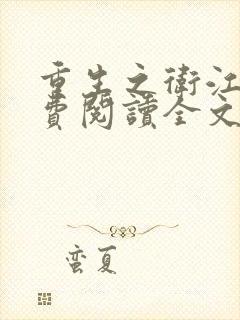 重生之衛江
費閱讀全文
蛮夏